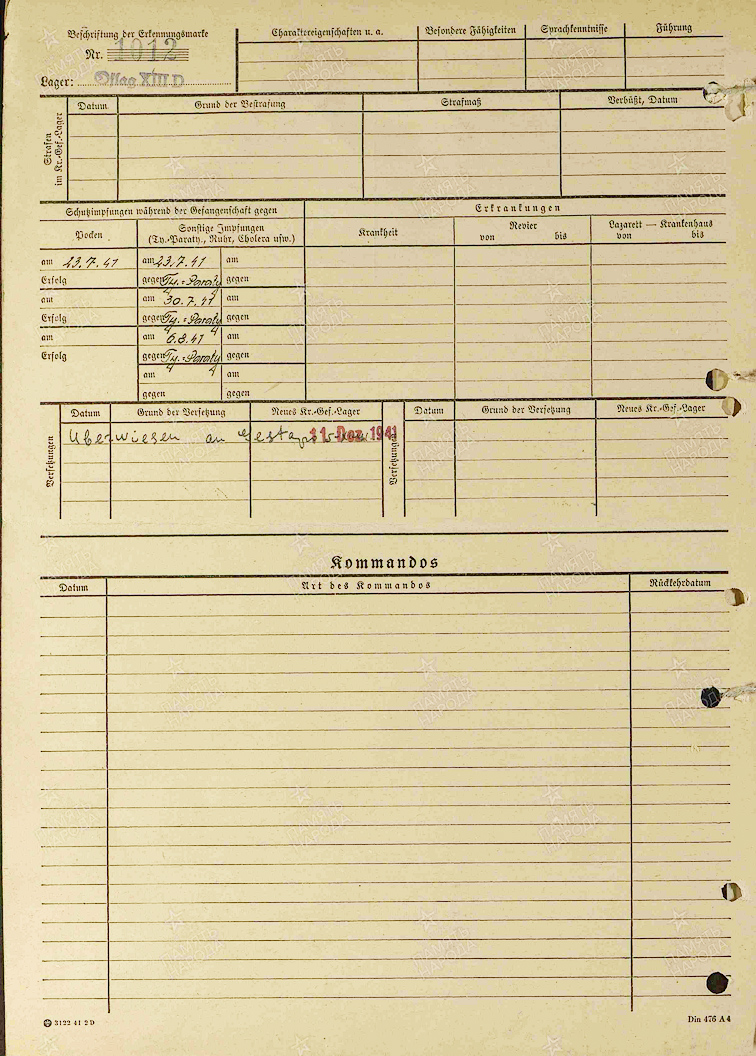 Beschriftung der Erkennungsmarke
Nr. 1012
Lager: Oflag XIII D
Charaktereigenschaften u. a.
Besondere Fähigkeiten
Sprachkenntnisse
Führung
Strafen im Kr.-Gef.-Lager
Datum
Grund der Bestrafung
Strafmaß
Verbüßt, Datum
Schutzimpfungen während der Gefangenschaft gegen
Erkrankungen
Pocken
Sonstige Impfungen
(Ty.-Paraty., Ruhr, Cholera usw.)
Krankheit
Revier
von bis
Lazarett — Krankenhaus
von bis
am 23.7.41 am 23.7.41 am
Erfolg gegen Ty.-Paraty gegen
am am 30.7.41 am
Erfolg gegen Ty.-Paraty gegen
am am 6.8.41 am
Erfolg gegen Ty.-Paraty gegen
am am
gegen gegen
Versetzungen
Datum Grund der Versetzung Neues Kr.-Gef.-Lager
Überwiesen an Gestapo 11. Dez. 1941
Versetzungen
Datum Grund der Versetzung Neues Kr.-Gef.-Lager
Kommandos
Datum Art des Kommandos Rückkehrdatum
3122 41 2D
Din 476 A 4
ПАМЯТЬ
НАРОДА